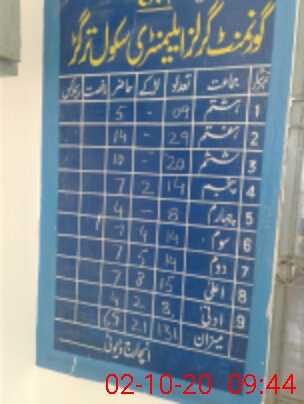 گورنمنٹ گرلز ایلیمنٹری سکول ترگڑ
نمبر شمار جماعت تعداد لڑکے حاضر رخصت
1 ہشتم 09 - 5
2 ہفتم 29 - 14
3 ششم 20 - 10
4 پنجم 14 2 7
5 چہارم 8 - 4
6 سوم 14 4 7
7 دوم 14 5 7
8 اعلیٰ 15 8 7
9 ادنیٰ 8 2 4
میزان 131 21 65
انچارج ڈیوٹی
02-10-20 09:44